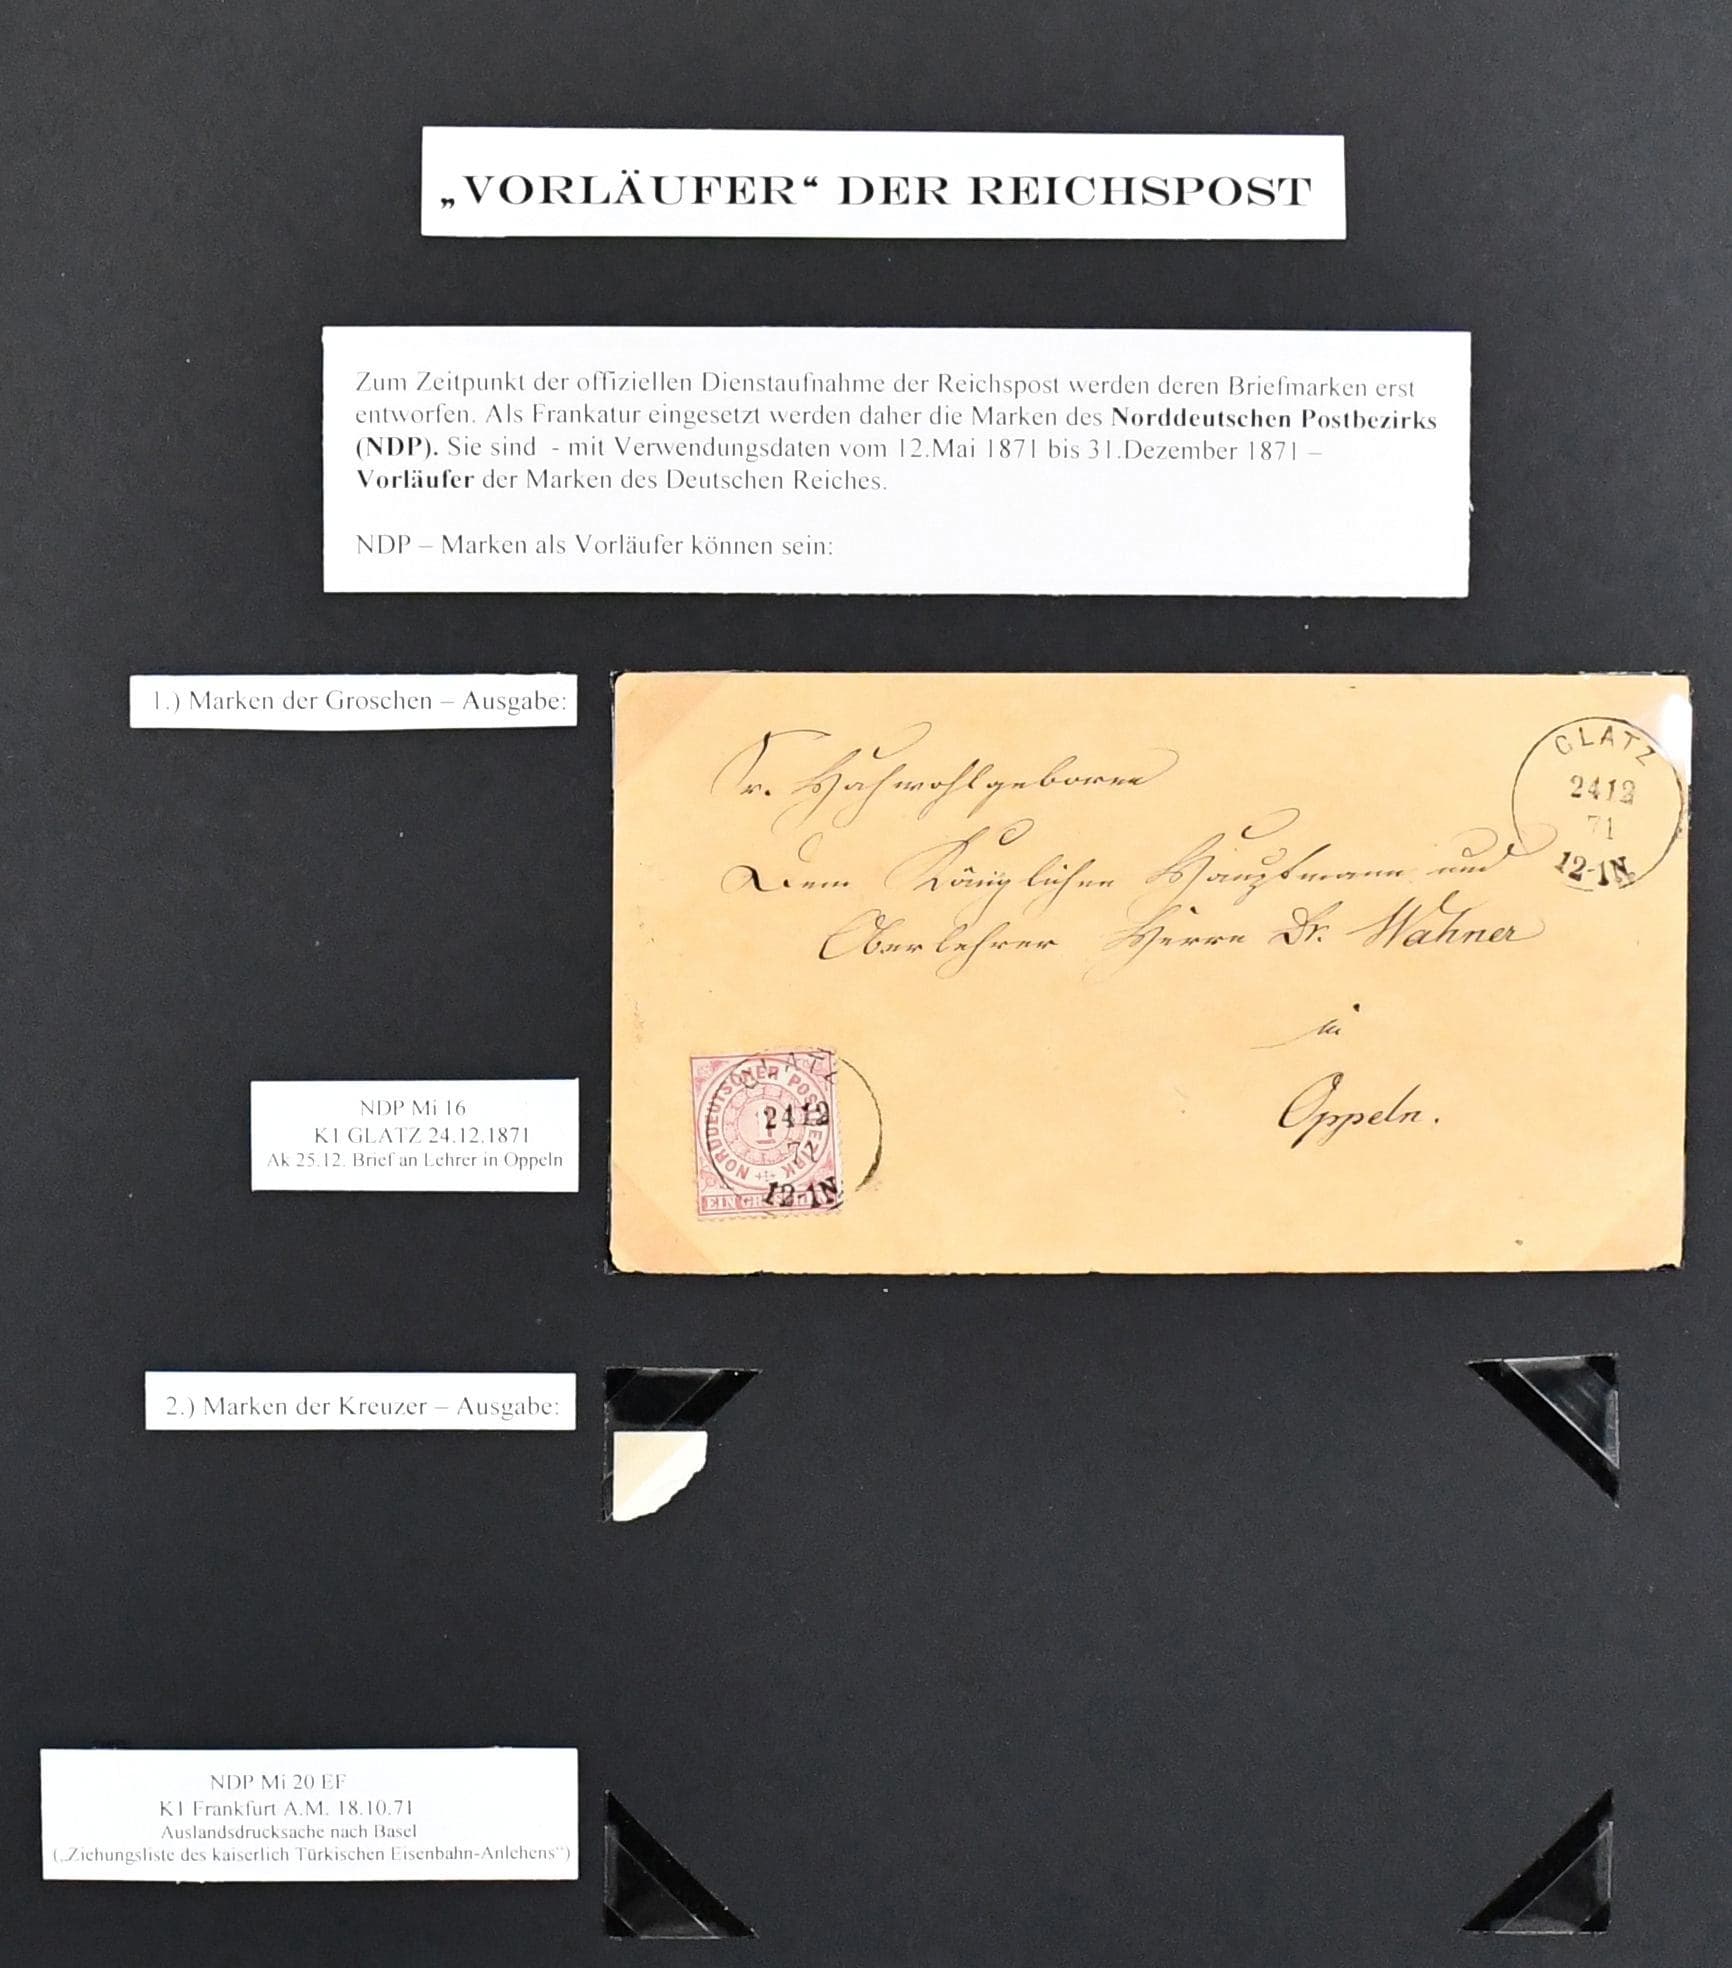 „VORLÄUFER“ DER REICHSPOST
Zum Zeitpunkt der offiziellen Dienstaufnahme der Reichspost werden deren Briefmarken erst
entworfen. Als Frankatur eingesetzt werden daher die Marken des Norddeutschen Postbezirks
(NDP). Sie sind - mit Verwendungsdaten vom 12.Mai 1871 bis 31.Dezember 1871 –
Vorläufer der Marken des Deutschen Reiches.
NDP – Marken als Vorläufer können sein:
1.) Marken der Groschen – Ausgabe:
GLATZ
2412
71
12-1N
Sr. Hochwohlgeboren
Dem Königlichen Hauptmann und
Oberlehrer Herrn Dr. Wahner
in
Oppeln.
NORDDEUTSCHER POSTBEZIRK
1
EIN GR
GLATZ
2412
71
12-1N
NDP Mi 16
K1 GLATZ 24.12.1871
Ak 25.12. Brief an Lehrer in Oppeln
2.) Marken der Kreuzer – Ausgabe:
NDP Mi 20 EF
K1 Frankfurt A.M. 18.10.71
Auslandsdrucksache nach Basel
(„Ziehungsliste des kaiserlich Türkischen Eisenbahn-Anlehens“)